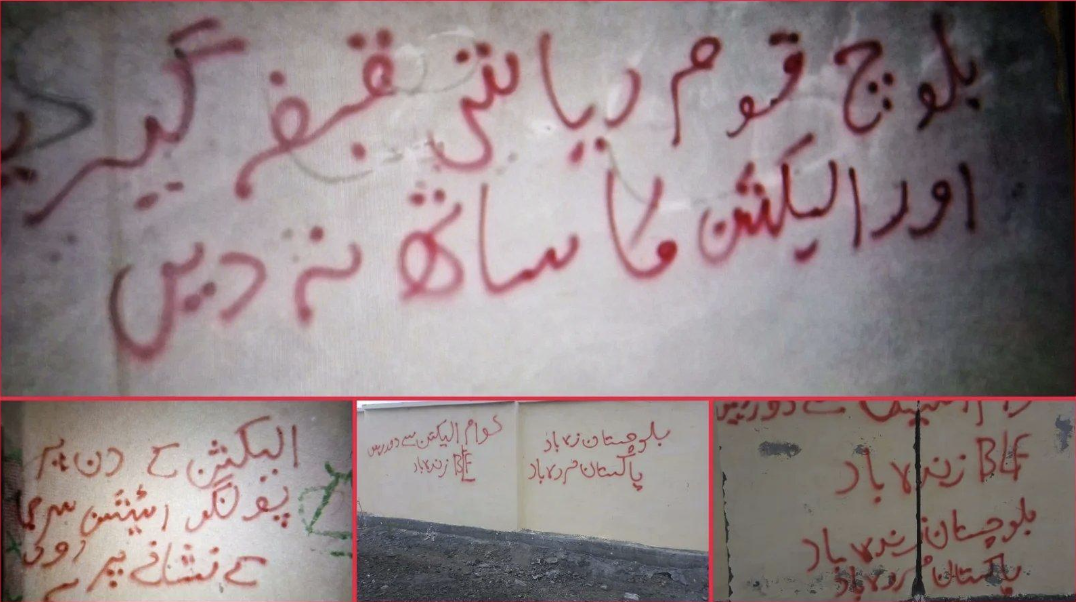 بلوچ قوم ریاستی قبضہ گیر
اور الیکشن کا ساتھ نہ دیں
الیکشن کے دن ہر
پولنگ اسٹیشن سرمچا
کے نشانے پر ہے
عوام الیکشن سے دور رہیں
BLF زندہ باد
بلوچستان زندہ باد
پاکستان مردہ باد
سے دور رہیں
BLF زندہ باد
بلوچستان زندہ باد
پاکستان مردہ باد